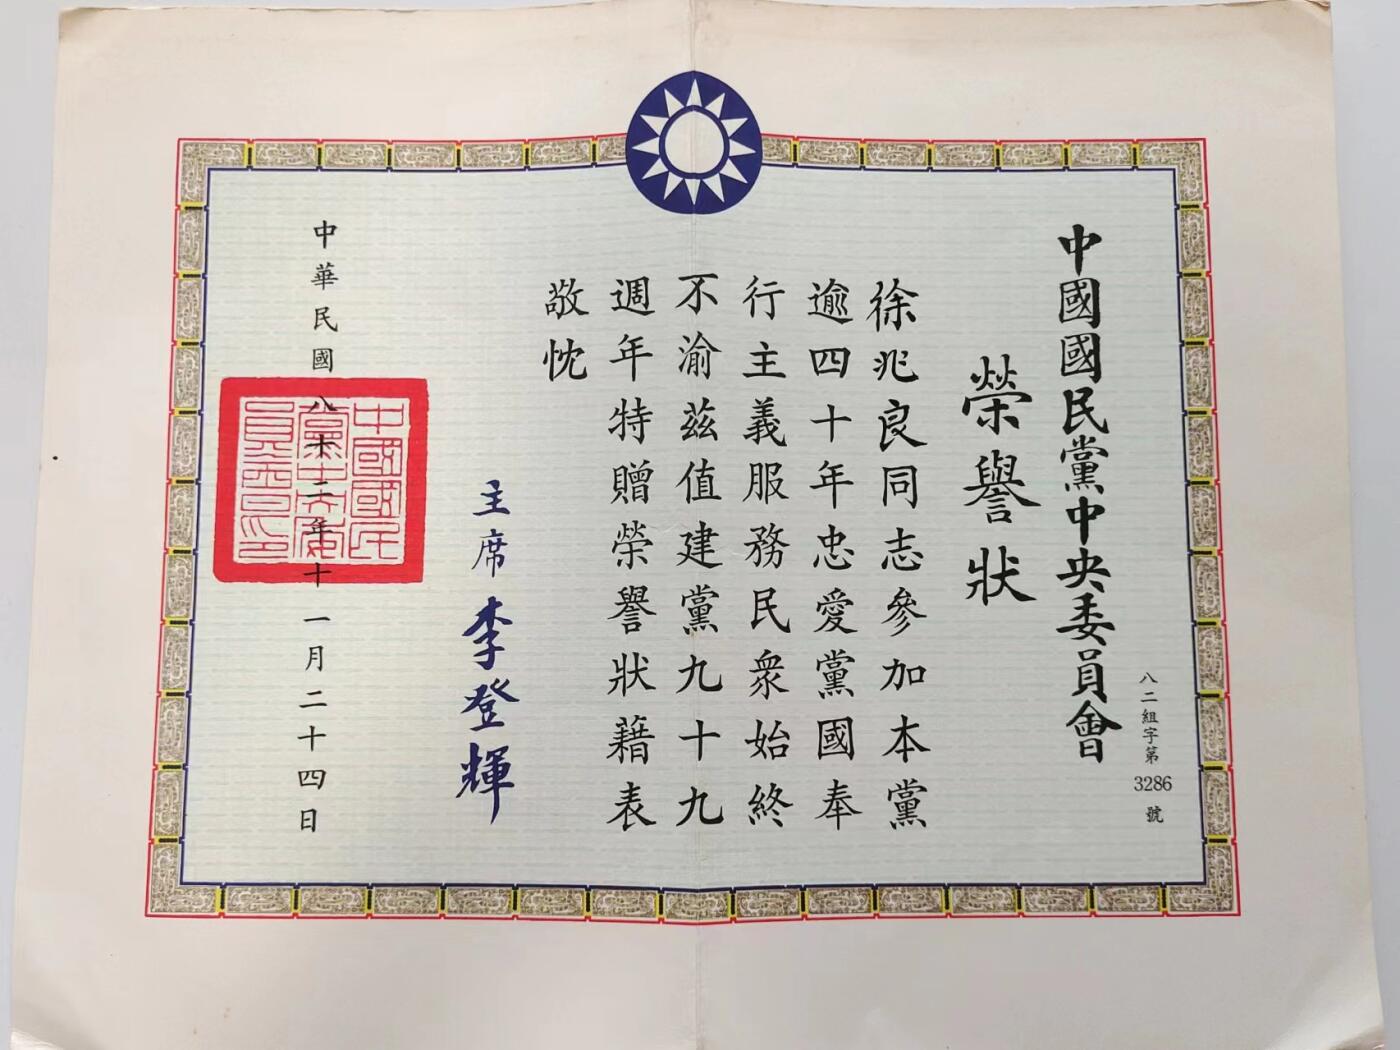 中國國民黨中央委員會
榮譽狀
八二組字第3286號
徐兆良同志參加本黨
逾四十年忠愛黨國奉
行主義服務民衆始終
不渝茲值建黨九十九
週年特贈榮譽狀藉表
敬忱
主席 李登輝
中華民國八十二年十一月二十四日